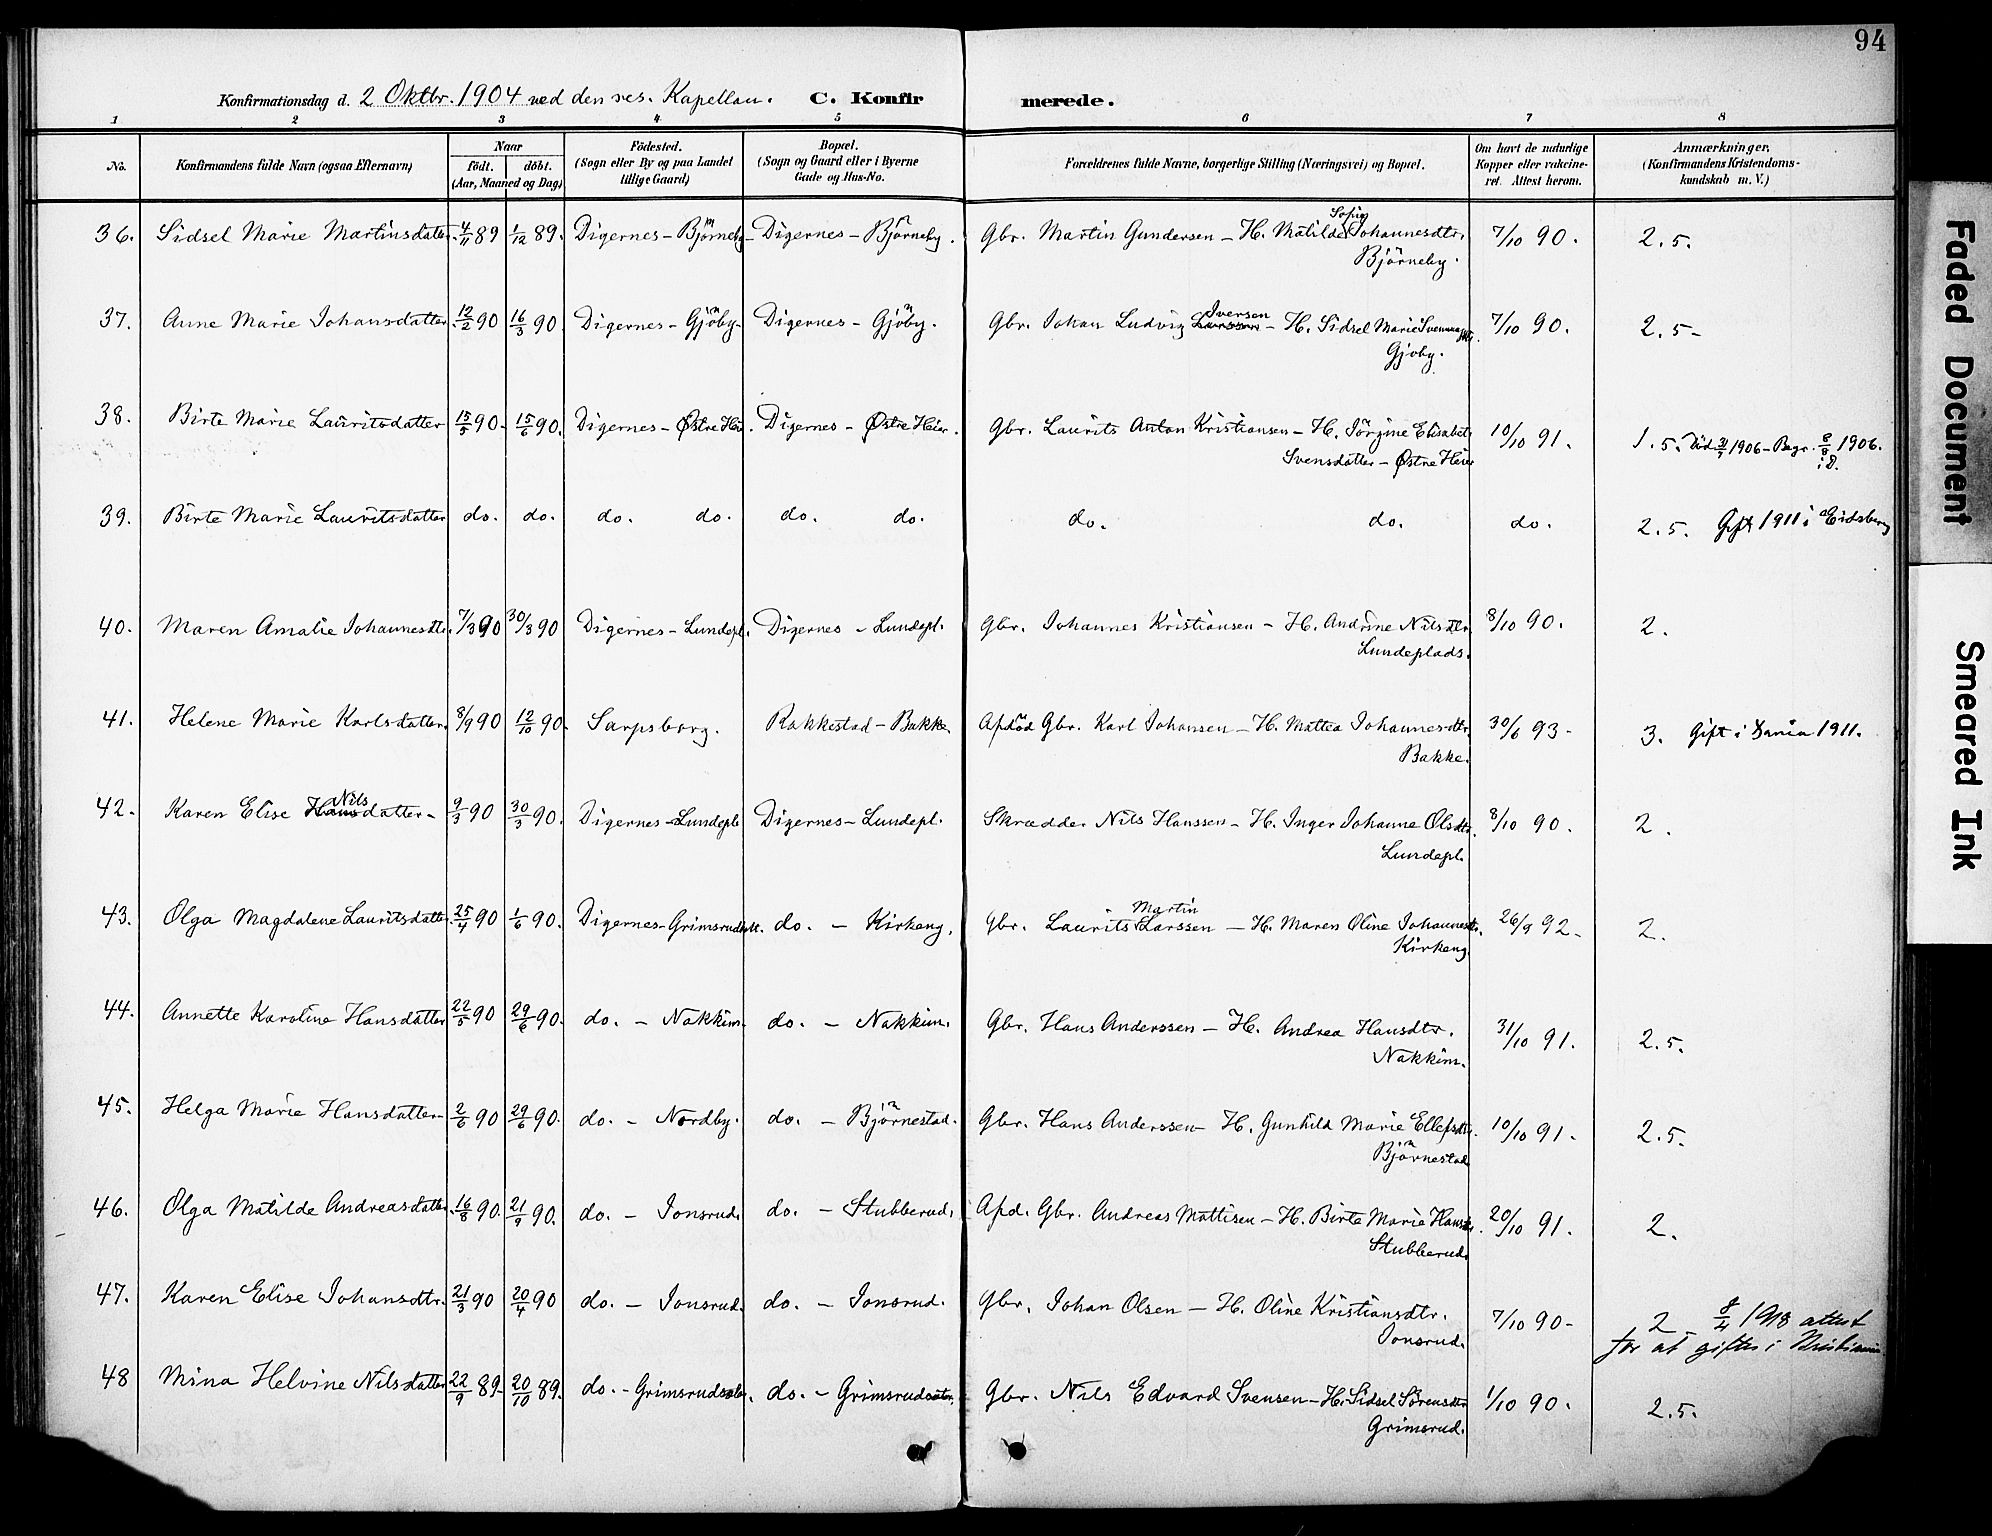 94
Konfirmationsdag d. 2 Oktbr. 1904 ved den res. Kapellan. C. Konfirmerede.
1 2 3 4 5 6 7 8
No. Konfirmandens fulde Navn (ogsaa Efternavn) Naar født. døbt. (Aar, Maaned og Dag) Födested. (Sogn eller By og paa Landet tillige Gaard) Bopæl. (Sogn og Gaard eller i Byerne Gade og Hus-No. Forældrenes fulde Navne, borgerlige Stilling (Næringsvei) og Bopæl. Om havt de naturlige Kopper eller vakcineret. Attest herom. Anmærkninger, (Konfirmandens Kristendomskundskab m. V.)
36. Sidsel Marie Martinsdatter 4/11 89 1/12 89. Digernes – Bjørneby – Digernes – Bjørneby. Gbr. Martin Gundersen – H. Matilde Sofie Johannesdtr. 7/10 90. 2.5.
Bjørneby.
37. Anne Marie Johansdatter 12/2 90 16/3 90. Digernes – Gjøby. Digernes – Gjøby. Gbr. Johan Ludvig Larssen Iversen – H. Sidsel Marie 7/10 90. 2.5 –
Gjøby.
38. Birte Marie Lauritsdatter 15/5 90. 15/6 90. Digernes – Østre Hei. Digernes – Østre Heier. Gbr. Laurits Anton Kristiansen – H. Jörgine Elisabet 10/10 91. 1.5. Död 1906 – Begr. 8/8 1906.
Svensdatter – Østre Heier i D.
39. Birte Marie Lauritsdatter do. do. do. do. do. do. do. do. do. 2.5. Gift 1911 i Eidsberg
40. Maren Amalie Johannesdtr. 7/3 90 30/3 90 Digernes – Lundepl. Digernes – Lundepl. Gbr. Johannes Kristiansen – H. Andrine Nilsdtr. 8/10 90. 2.
Lundeplads.
41. Helene Marie Karlsdatter. 8/9 90 12/10 90. Sarpsborg. Rakkestad – Bakke. Afdød Gbr. Karl Johansen – H. Mattea Johannesdtr. 30/6 93 – 3. Gift i 1911.
Bakke.
42. Karen Elise Hans Nilsdatter – 9/3 90 30/3 90. Digernes – Lundepl. Digernes – Lundepl. Skrædder Nils Hanssen – H. Inger Johanne Olsdtr. 8/10 90. 2.
Lundepl.
43. Olga Magdalene Lauritsdatter 25/4 90 1/6 90. Digernes – do. – Kirkeng. Gbr. Laurits Martin Larssen – H. Maren Oline Johannesdtr. 26/9 92 – 2.
Kirkeng.
44. Annette Karoline Hansdatter 22/5 90 29/6 90. do. – Nakkim. do. – Nakkim. Gbr. Hans Anderssen – H. Andrea Hansdtr. 31/10 91. 2.5.
Nakkim.
45. Helga Marie Hansdatter – 2/6 90 29/6 90. do. – Nordby. do. – Bjørnestad. Gbr. Hans Anderssen – H. Gunhild Marie Ellefsdtr. 10/10 91. 2.5.
Bjørnestad
46. Olga Matilde Andreasdatter. 16/8 90. 21/9 90. do. – Jonsrud. do. – Stubberud. Afd. Gbr. Andreas Mattisen – H. Birte Marie Hansdtr. 20/10 91. 2.
Stubberud.
47. Karen Elise Johansdtr. 21/3 90 20/4 90 do. – Jonsrud. do. – Jonsrud. Gbr. Johan Olsen – H. Oline Kristiansdtr. 7/10 90 – 2 – 1918 attest
Jonsrud. for at giftes i Kristiania
48 Mina Helvine Nilsdatter 22/9 89 – 20/10 89. do. – do. – Gbr. Nils Edvard Svensen – H. Sidsel Sörensdtr 1/10 90. 2.5.
Grimsrud.
Faded Document
Smeared Ink